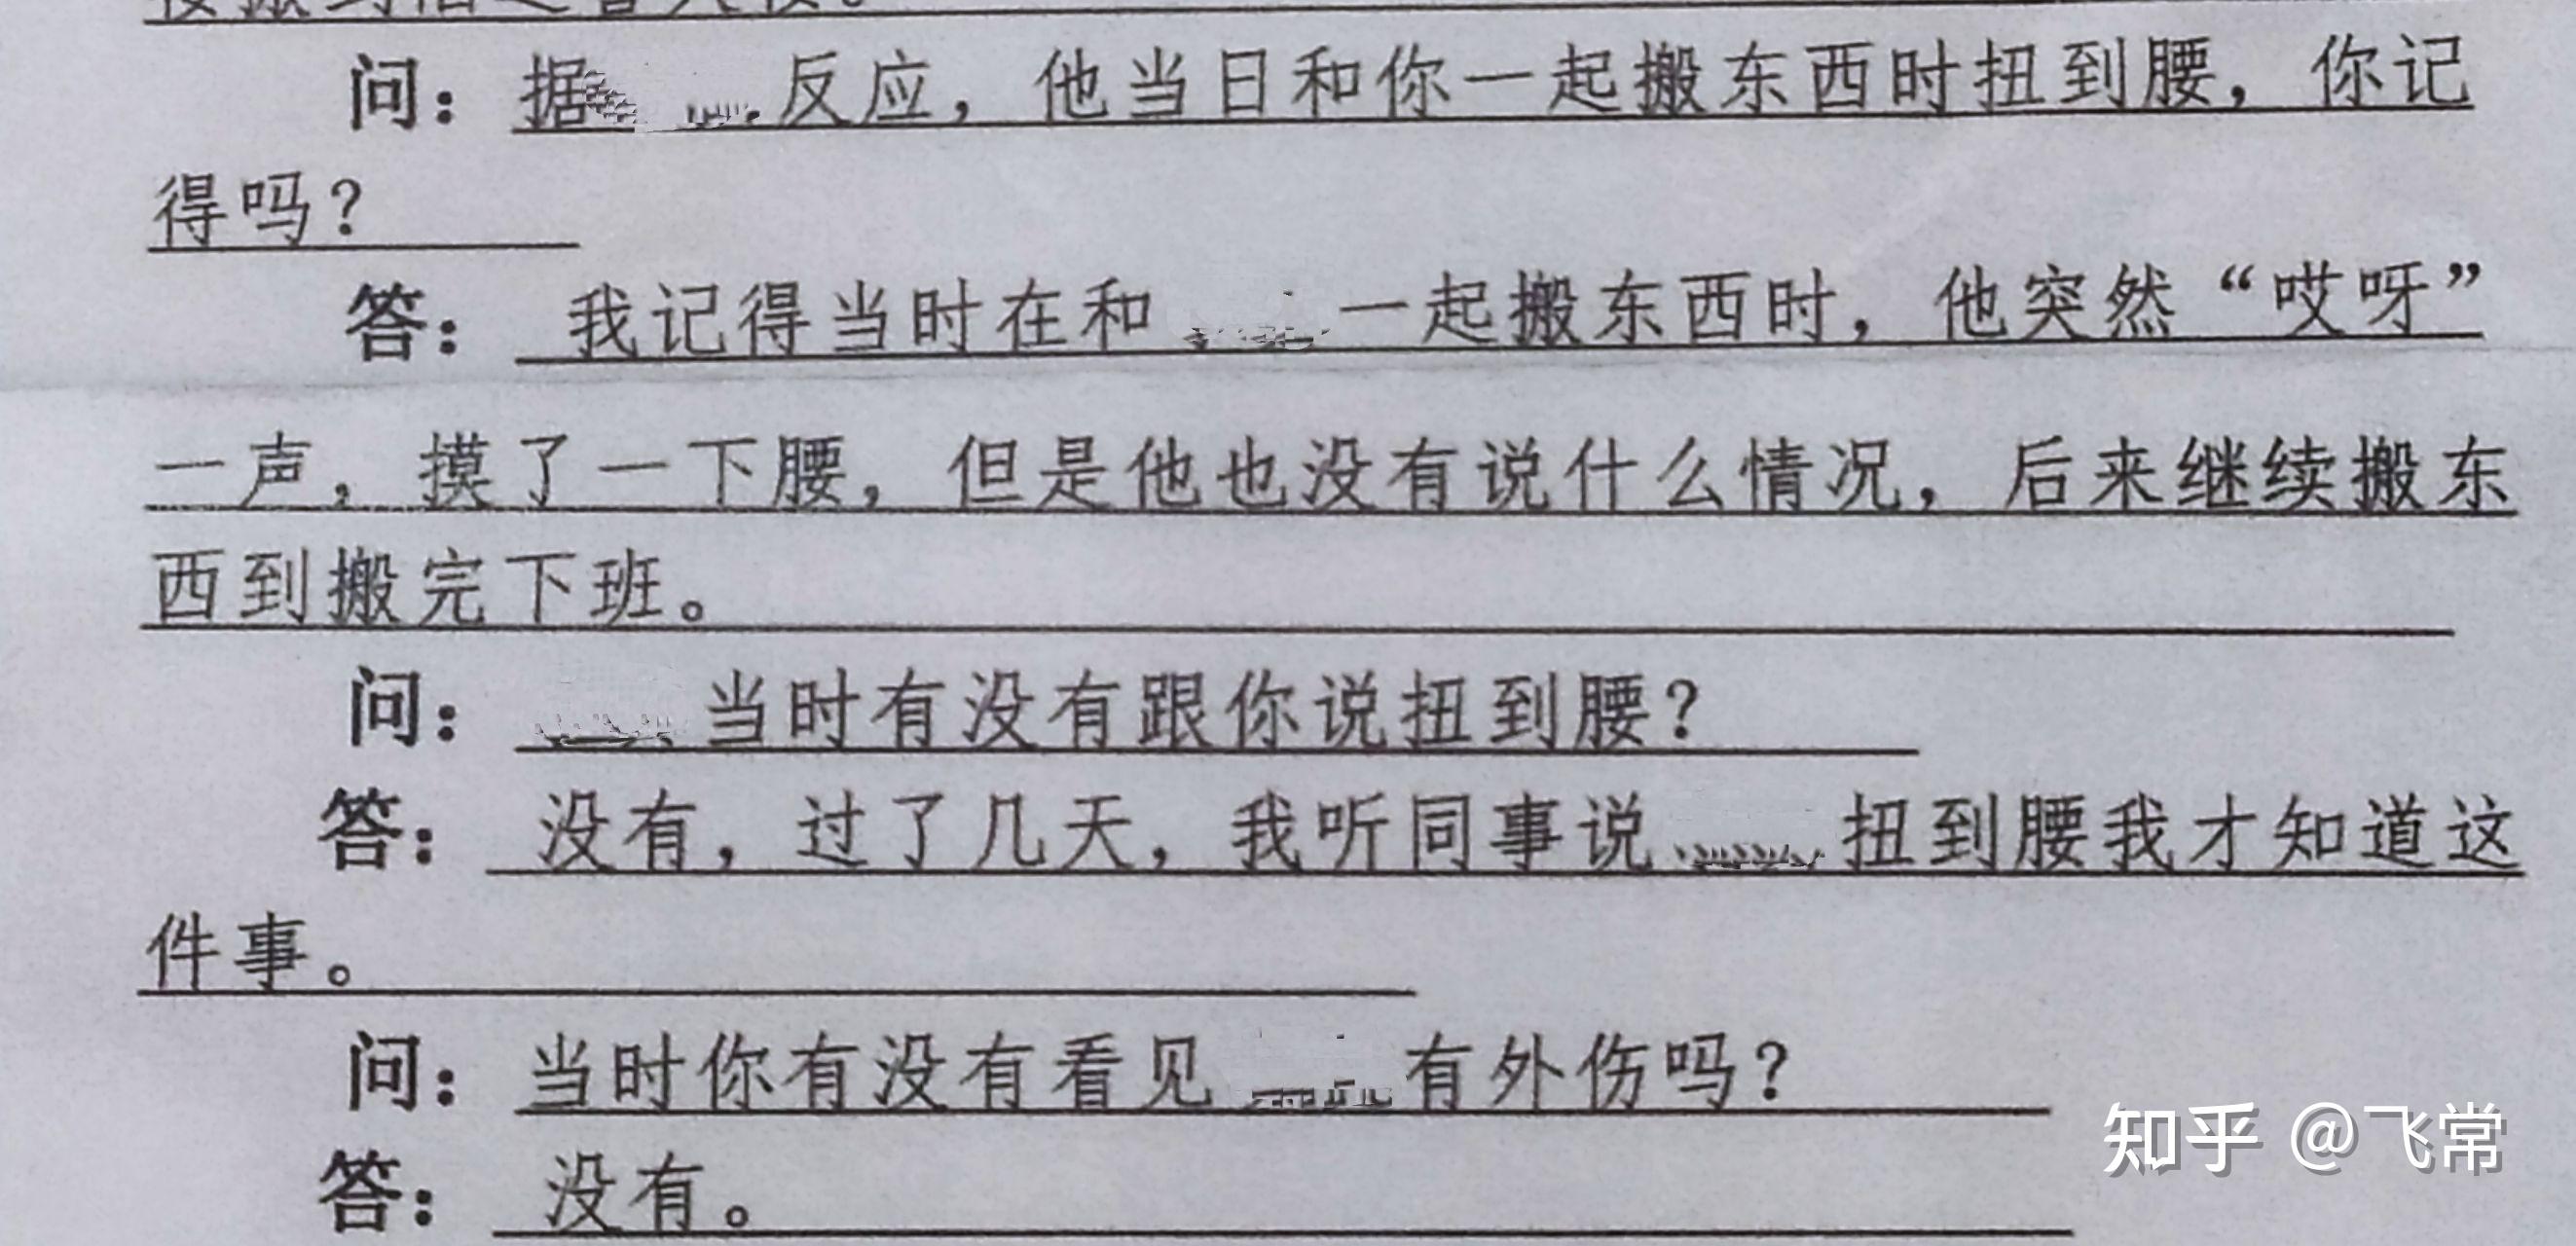 问：据 反应，他当日和你一起搬东西时扭到腰，你记
得吗？
答：我记得当时在和 一起搬东西时，他突然“哎呀”
一声，摸了一下腰，但是他也没有说什么情况，后来继续搬东
西到搬完下班。
问： 当时有没有跟你说扭到腰？
答：没有，过了几天，我听同事说 扭到腰我才知道这
件事。
问：当时你有没有看见 有外伤吗？
答：没有。
知乎 @飞常